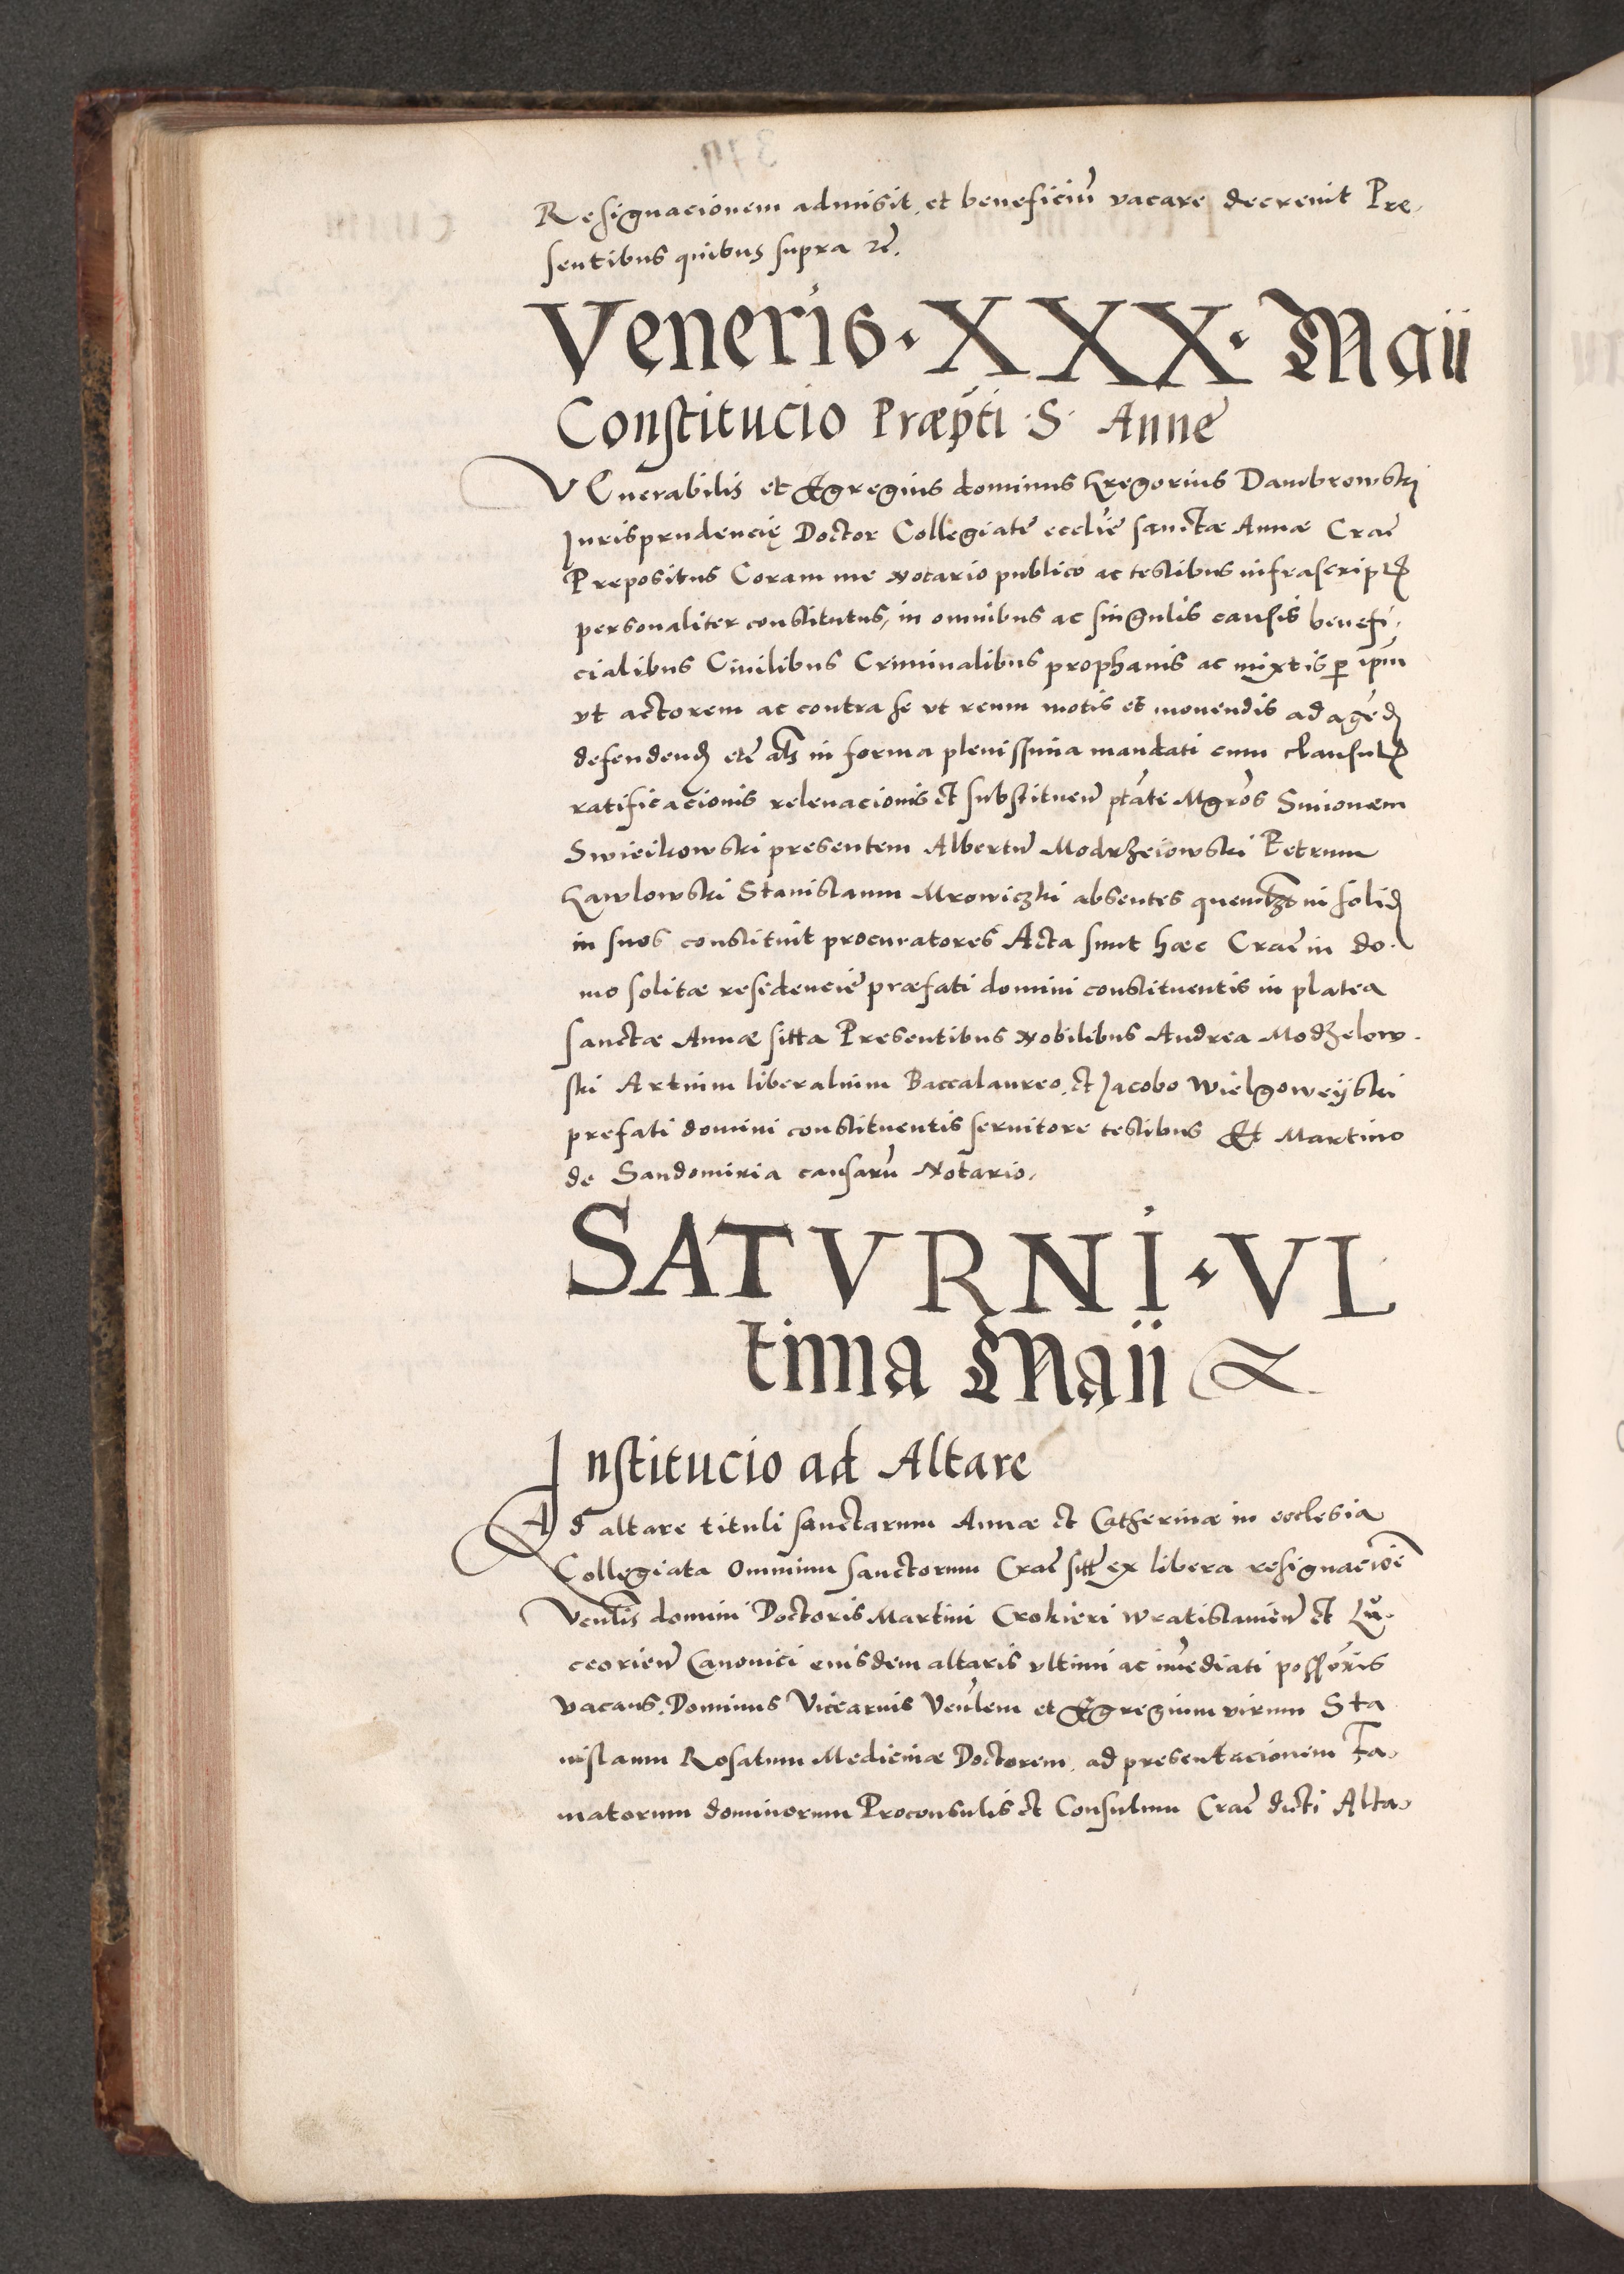 Resignacionem admisit, et beneficiũ vacare decrevit Pre,
sentibus quibus supra rẽ.
Veneris · XXX · Maii
Constitucio Præpti · S · Anne
VEnerabilis et Egregius dominus Gregorius Dambrowski
Jurisprudencię Doctor Collegiate ecclie sanctæ Annæ Craĉ
Prepositus Coram me Notario publico ac testibus infrascript
personaliter constitutus, in omnibus ac singulis causis benefi,
cialibus Civilibus Criminalibus prophanis ac mixtis p ipm
vt actorem ac contra se vt reum motis et movendis ad agẽd
defendend etc̃ als in forma plenissima mandati cum clausul
ratificacionis relevacionis et substituen̄ ptãte Mgros Simonem
Swieikowski presentem Albertũ Modrzeiowski Petrum
Gawlowski Stanislaum Mrowiczki absentes quemlzt in solid
in suos constituit procuratores Acta sunt hæc Craĉ in do.
mo solitæ residencie præfati domini constituentis in platea
sanctæ Annæ sitta Presentibus Nobilibus Andrea Modzelow.
ski Artium liberalium Baccalaureo, et Jacobo Wielgoweyski
prefati domini constituentis servitore testibus Et Martino
de Sandomiria causarũ Notario,
SATVRNI · VL
tima Maii
Institucio ad Altare
Ad altare tituli sanctarum Annæ et Catherinæ in ecclesia
Collegiata Omnium sanctorum Craĉ sitt̃ ex libera resignacioẽ
Venlis domini Doctoris Martini Crokieri Wratislavien̄ et Lu.
ceorien̄ Canonici eiusdem altaris vltimi ac im̃ediati possoris
vacans, Dominus Vicearius Venlem et Egregium virum Sta
nislaum Rosatum Medicinæ Doctorem, ad presentacionem Fa,
matorum dominorum Proconsulis et Consulum Craĉ dicti Alta,